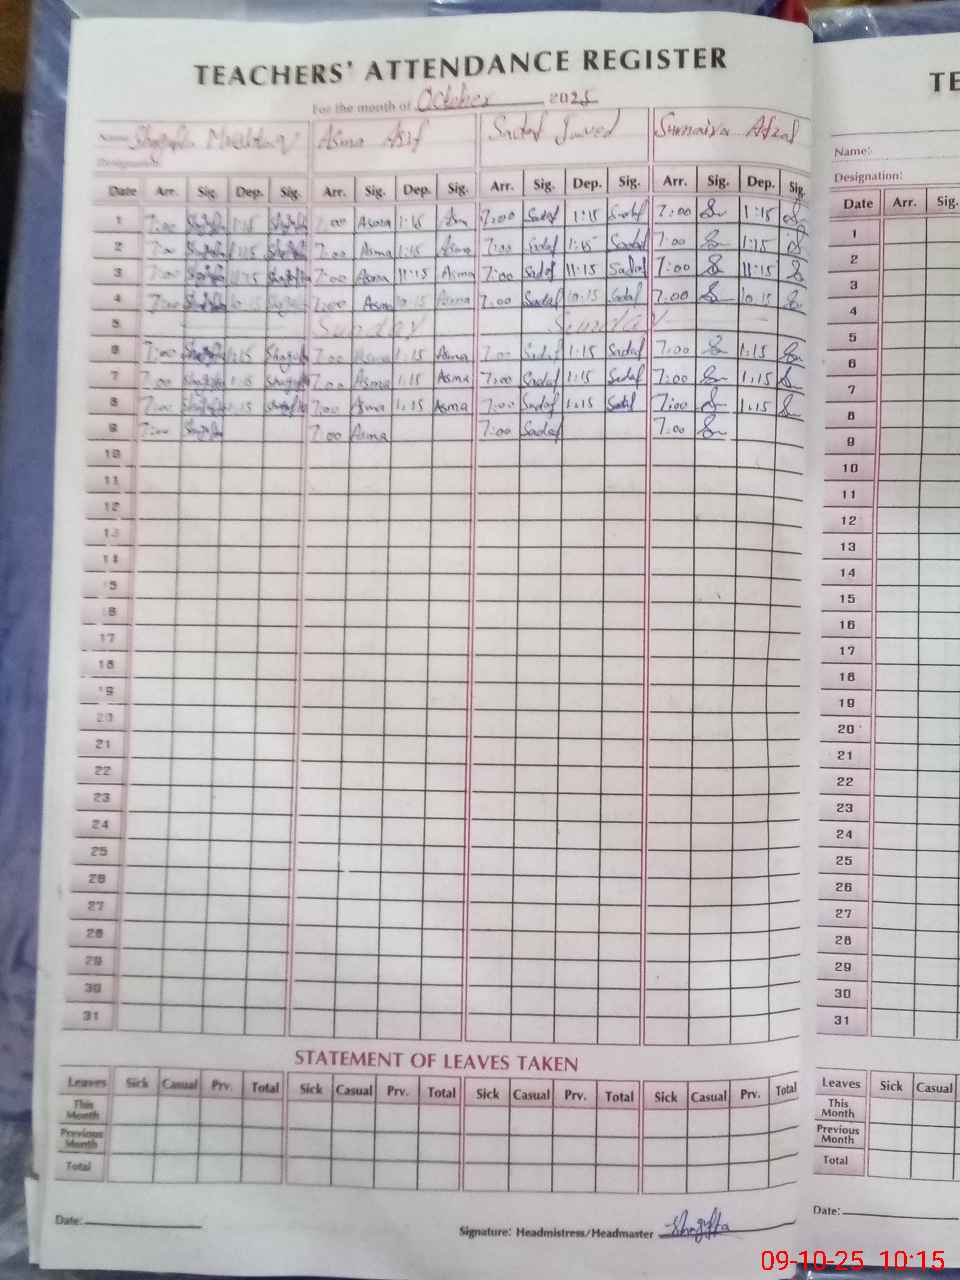 TEACHERS' ATTENDANCE REGISTER
TE
For the month of October 2025
Name: Asma Asif Sadaf Javed Sumaira Afzal
Designation:
Name:
Designation:
Date Arr. Sig. Dep. Sig. Arr. Sig. Dep. Sig. Arr. Sig. Dep. Sig. Arr. Sig. Dep. Sig.
Date Arr. Sig.
1 7:00 1:15 7:00 Asma 1:15 Asm 7:00 Sadaf 1:15 Sadaf 7:00 1:15
2 7:00 1:15 7:00 Asma 1:15 Asma 7:00 Sadaf 1:15 Sadaf 7:00 1:15
3 7:00 11:15 7:00 Asma 11:15 Asma 7:00 Sadaf 11:15 Sadaf 7:00 11:15
4 7:00 10:15 7:00 Asma 10:15 Asma 7:00 Sadaf 10:15 Sadaf 7:00 10:15
5 Sunday Sunday
6 7:00 1:15 7:00 Asma 1:15 Asma 7:00 Sadaf 1:15 Sadaf 7:00 1:15
7 7:00 1:15 7:00 Asma 1:15 Asma 7:00 Sadaf 1:15 Sadaf 7:00 1:15
8 7:00 1:15 7:00 Asma 1:15 Asma 7:00 Sadaf 1:15 Sadaf 7:00 1:15
9 7:00 7:00 Asma 7:00 Sadaf 7:00
10
11
12
13
14
15
16
17
18
19
20
21
22
23
24
25
26
27
28
29
30
31
1
2
3
4
5
6
7
8
9
10
11
12
13
14
15
16
17
18
19
20
21
22
23
24
25
26
27
28
29
30
31
STATEMENT OF LEAVES TAKEN
Leaves Sick Casual Prv. Total Sick Casual Prv. Total Sick Casual Prv. Total Sick Casual Prv. Total
This
Month
Previous
Month
Total
Leaves Sick Casual
This
Month
Previous
Month
Total
Date:
Signature: Headmistress/Headmaster Shagufta
Date:
09-10-25 10:15